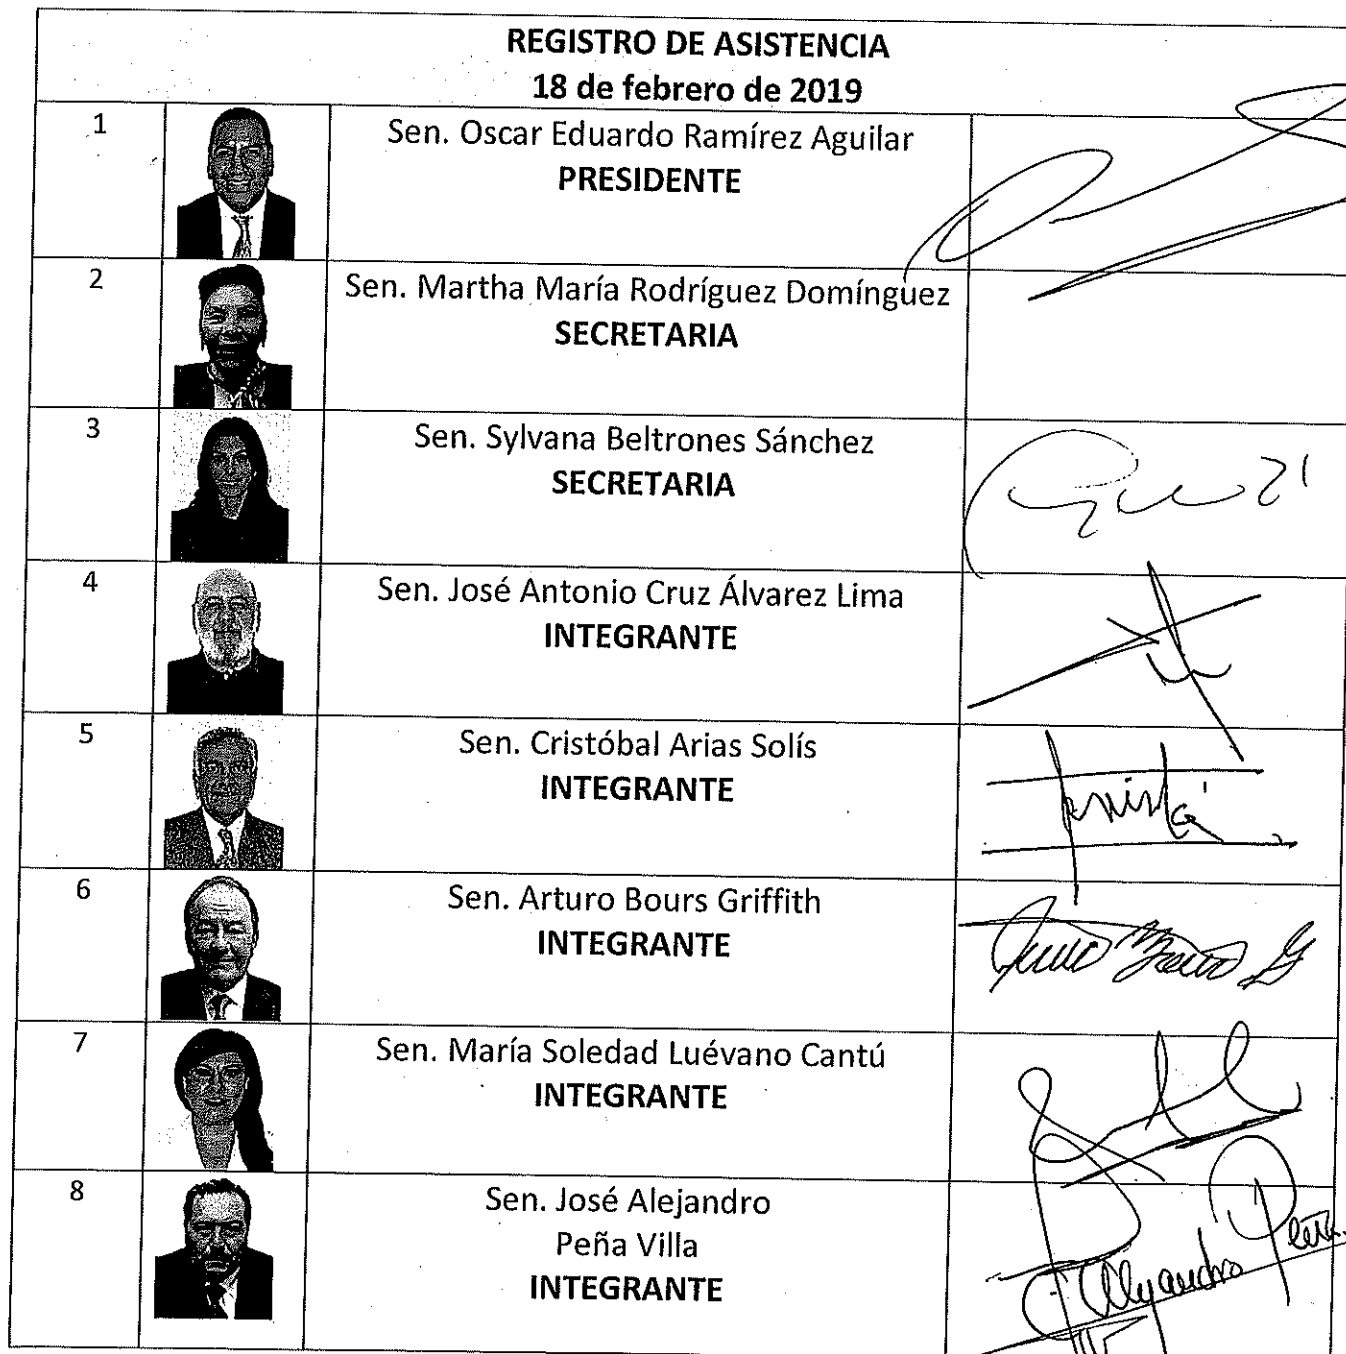 REGISTRO DE ASISTENCIA
18 de febrero de 2019
1
Sen. Oscar Eduardo Ramírez Aguilar
PRESIDENTE
2
Sen. Martha María Rodríguez Domínguez
SECRETARIA
3
Sen. Sylvana Beltrones Sánchez
SECRETARIA
4
Sen. José Antonio Cruz Álvarez Lima
INTEGRANTE
5
Sen. Cristóbal Arias Solís
INTEGRANTE
6
Sen. Arturo Bours Griffith
INTEGRANTE
7
Sen. María Soledad Luévano Cantú
INTEGRANTE
8
Sen. José Alejandro
Peña Villa
INTEGRANTE
Alejandro Peña